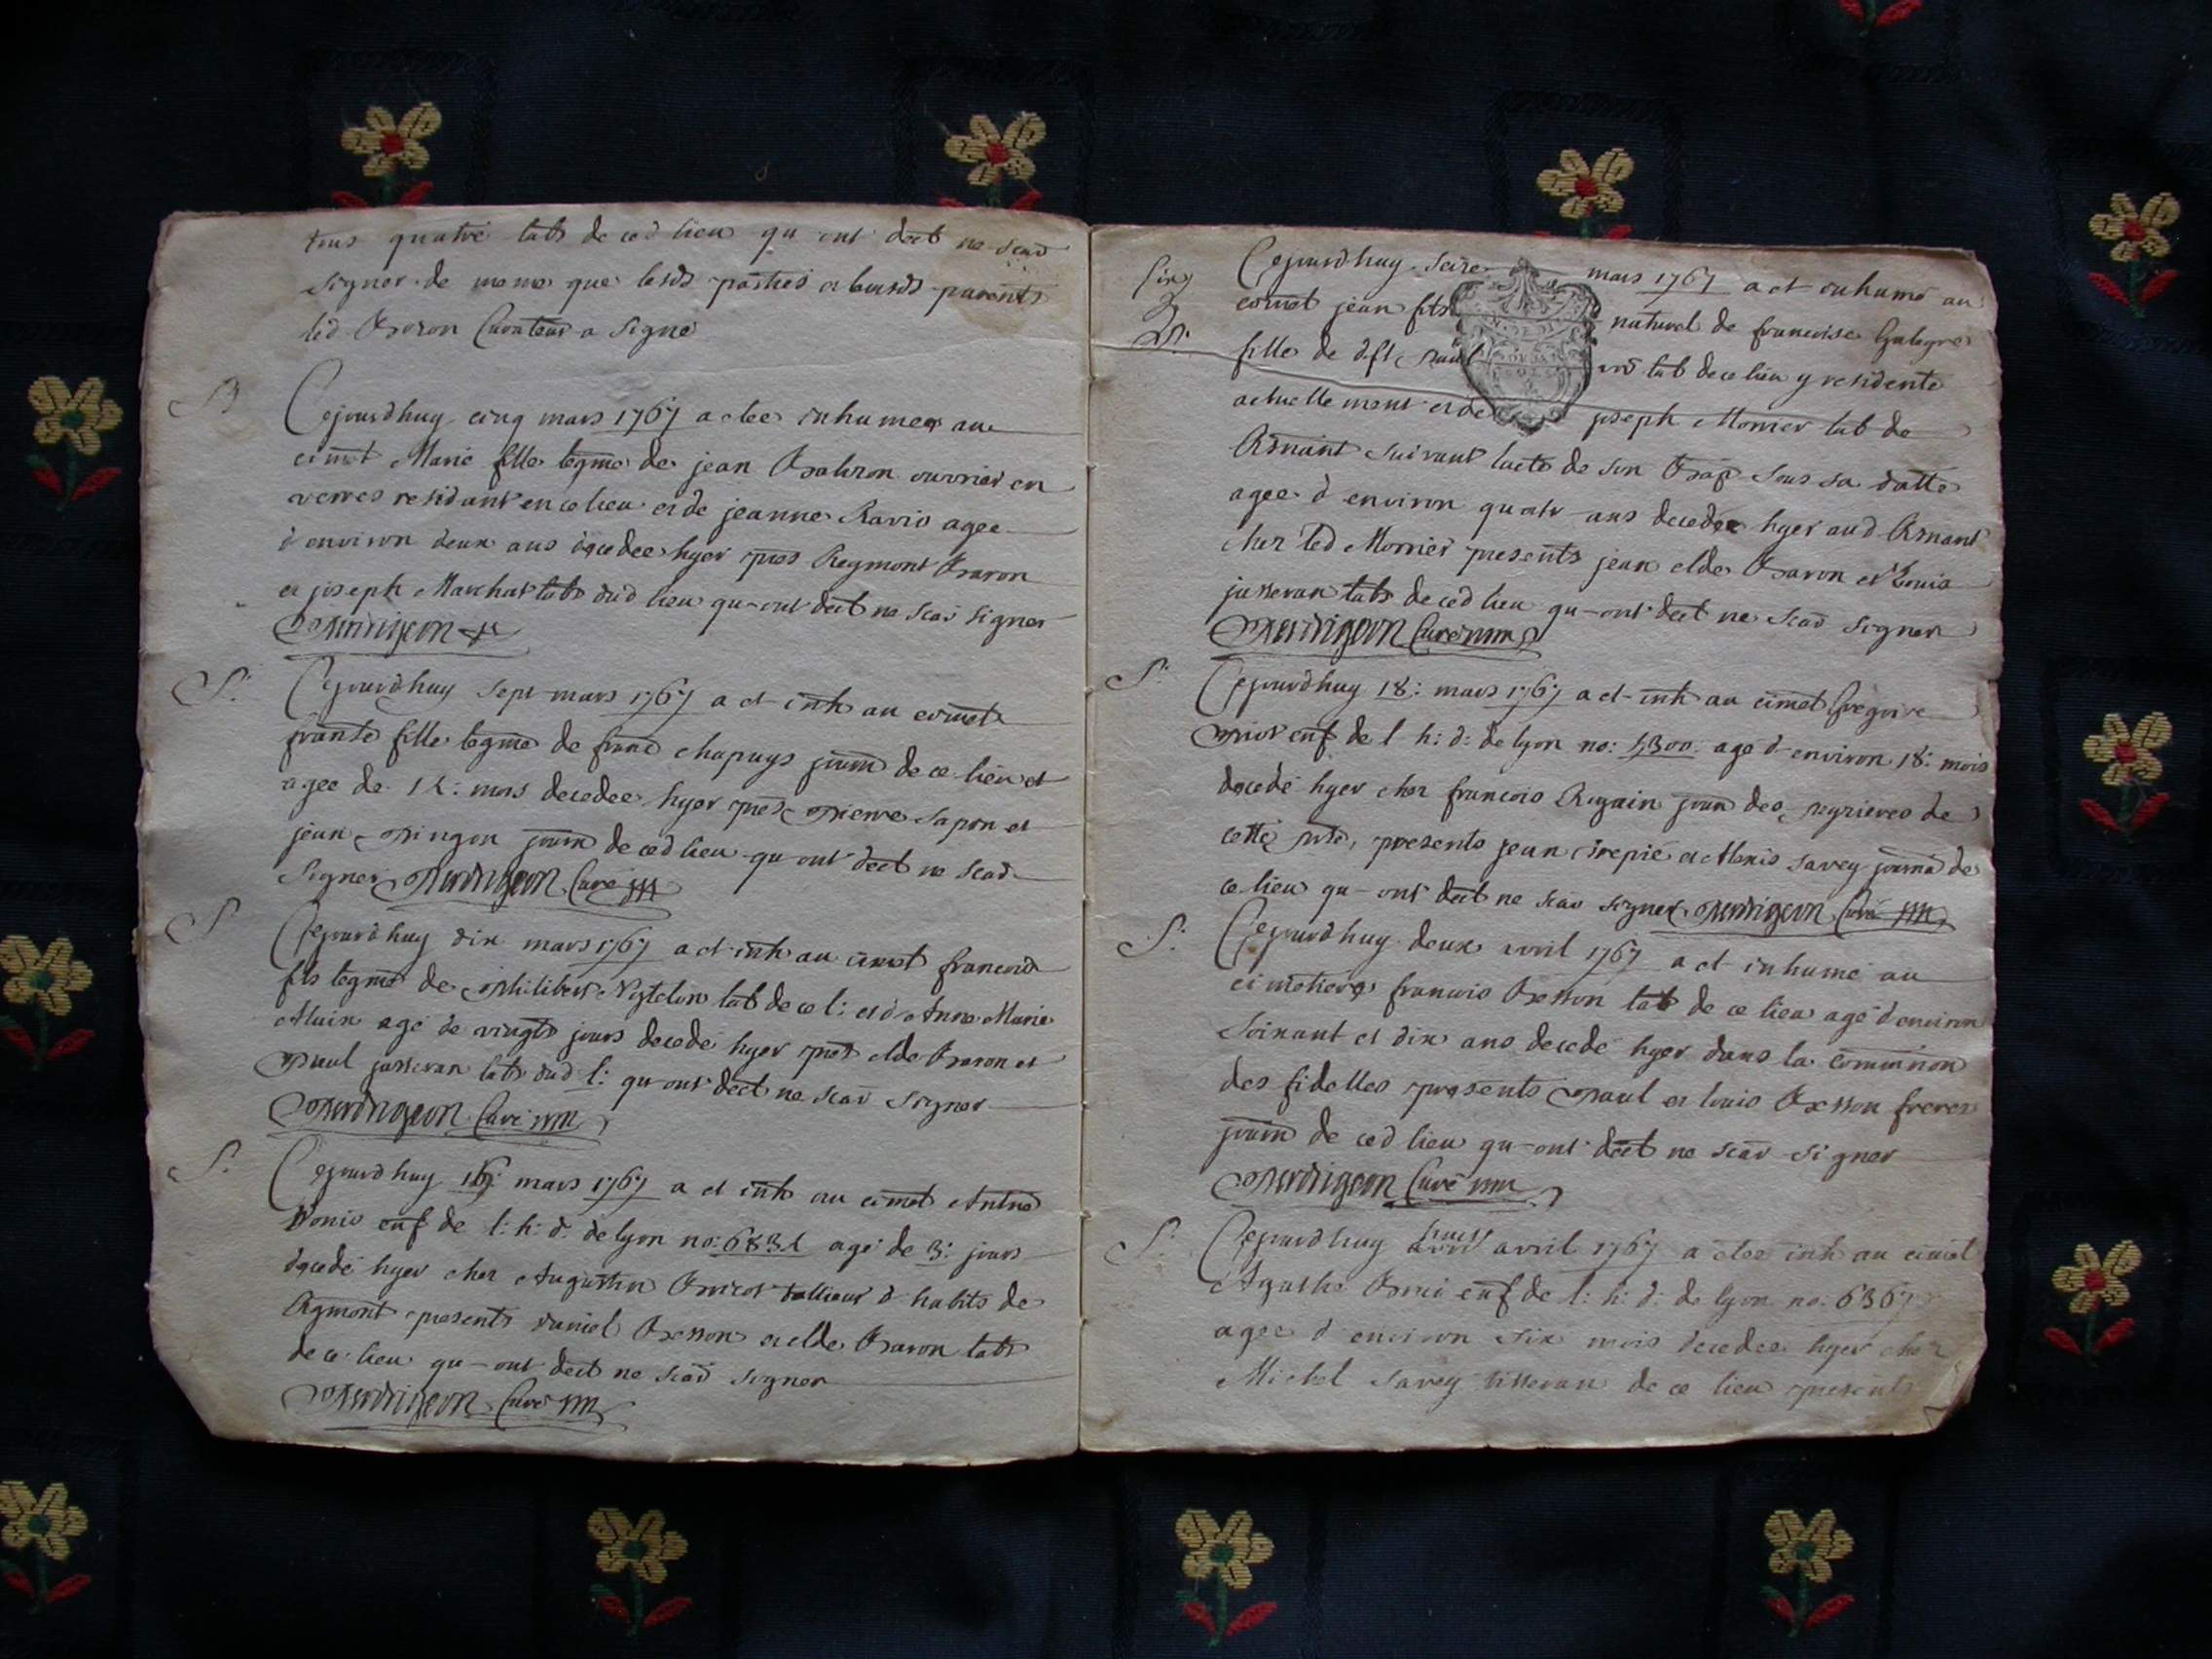 tous quatre labs de ced lieu qu ont declt ne scav
signer de meme que lesds parties et leursds parents
led Baron Curateur a signé
Cejourdhuy cinq mars 1767 a etee inhumee au
cimet Marie fille legme de jean ouvrier en
verres residant en ce lieu et de jeanne Ravio agee
d environ deux ans decedee hyer pres Reymont Baron
et joseph Marchat labs dud lieu qu-ont declt ne scav signer
Perdrigeon
S: Cejourdhuy sept mars 1767 a et inh au cimet
fille legme de franc chapuys journ de ce lieu et
agee de mois decedee hyer pres Pierre Sapon et
jean Pingon journ de ced lieu qu ont declt ne scav
signer Perdrigeon Curé
S Cejourdhuy dix mars 1767 a et inh au cimet francois
fils legme de Philibert lab de ce l: et d Anne Marie
Aluin agé de vingts jours decedé hyer pres elde Baron et
Paul jasseran labs dud l: qu ont declt ne scav signer
Perdrigeon Curé
S: Cejourdhuy 16: mars 1767 a et inh au cimet Antne
enf de l: h: d: de lyon no: agé de 3: jours
decedé hyer chez Augustin Bricot tallieur d habits de
presents daniel Besson et elde Baron labs
de ce lieu qu-ont declt ne scav signer
Perdrigeon Curé
Cejourdhuy seize mars 1767 a et inhumé au
cimet jean fils naturel de francoise
fille de dft Paul lab de ce lieu y residente
actuellement et de joseph Monier lab de
suivant lacte de son Bap sous sa datte
agee d environ quatr ans decedee hyer aud
chez led Monier presents jean elde Baron et Louis
jasseran labs de ced lieu qu-ont declt ne scav signer
Perdrigeon Curé
S: Cejourdhuy 18: mars 1767 a et inh au cimet Gregoire
enf de l h: d: de lyon no: agé d environ 18: mois
decedé hyer chez francois Rugain journ des de
cette prse, presents jean et Alexis Savey journa de
ce lieu qu-ont declt ne scav signer Perdrigeon Curé
S: Cejourdhuy deux avril 1767 a et inhumé au
cimetiere francois Besson lab de ce lieu agé d environ
soixant et dix ans decedé hyer dans la commnion
des fidelles presents Paul et louis Besson freres
journ de ced lieu qu-ont declt ne scav signer
Perdrigeon Curé
S: Cejourdhuy huit avril 1767 a etee inh au cimet
Agathe enf de l: h: d: de lyon no: 6367
agee d environ six mois decedee hyer chez
Michel Savey tisseran de ce lieu presents